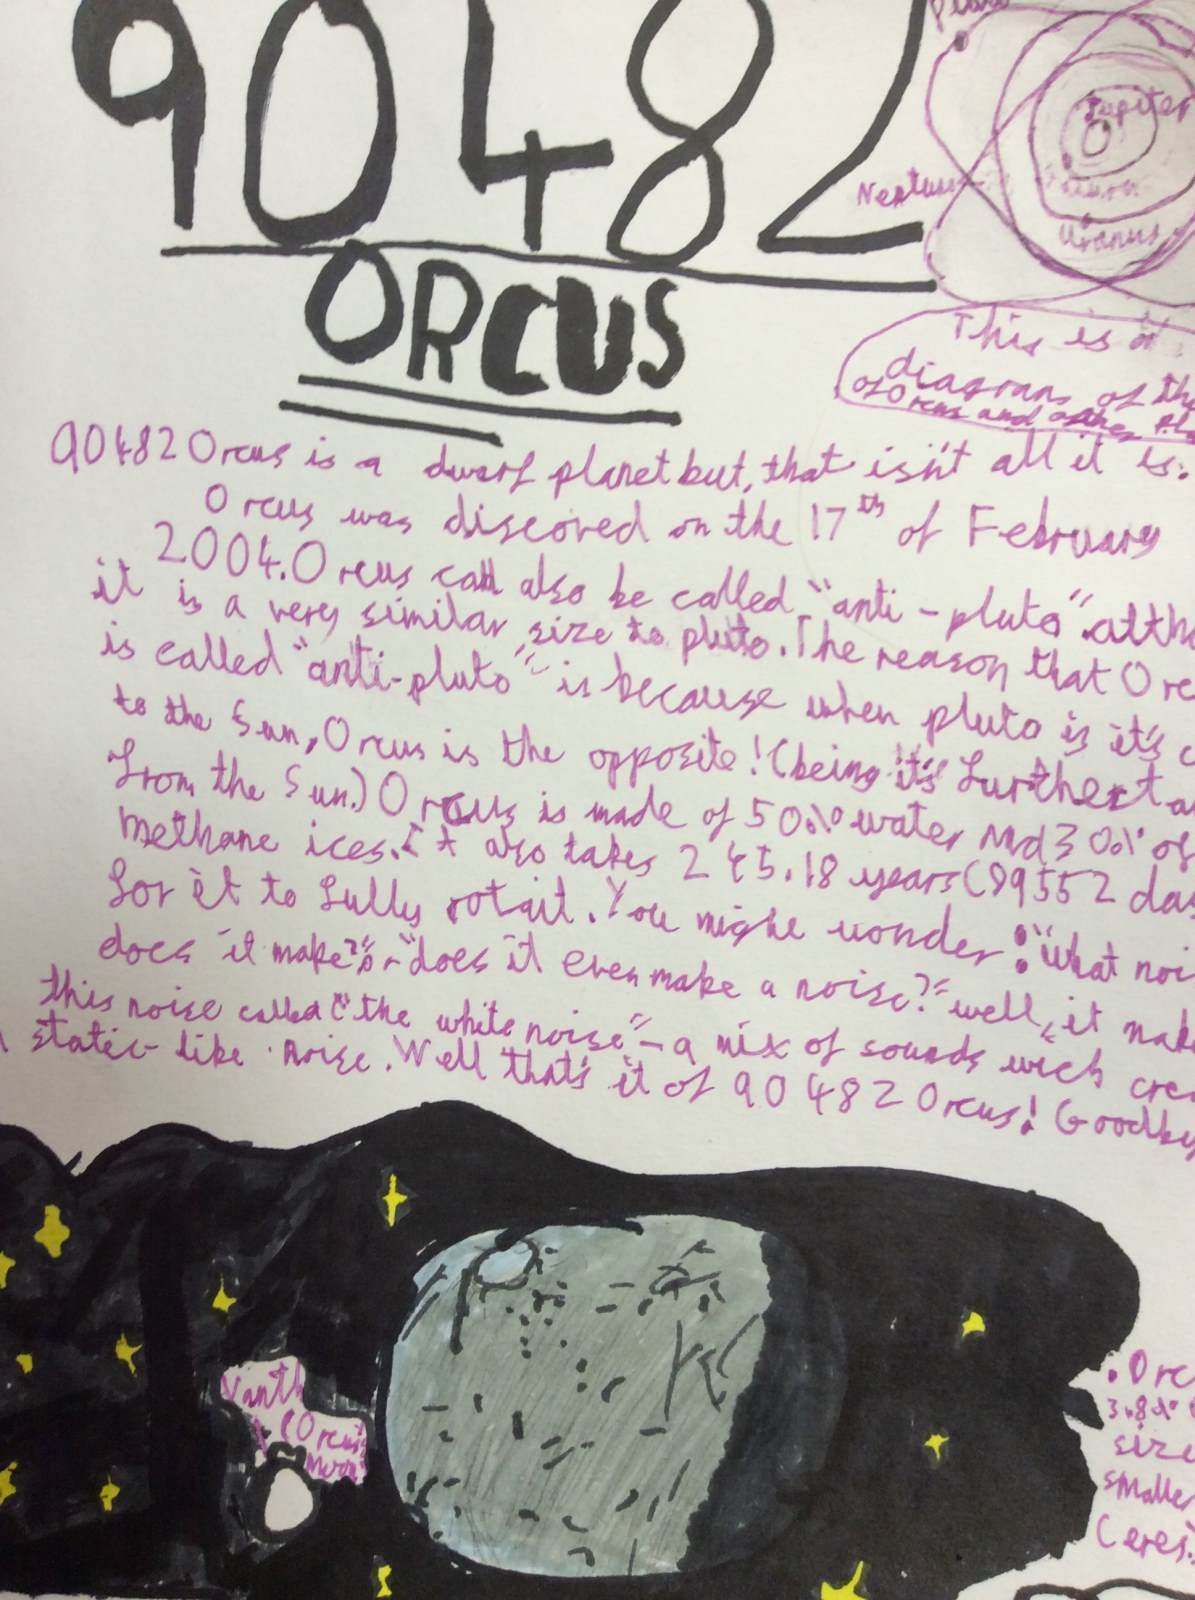 90482
Pluto
Jupiter
Neptune
Uranus
ORCUS
This is a
diagram of the
of Orcus and other Pla
90482 Orcus is a dwarf planet but, that isn't all it is.
Orcus was discoved on the 17th of February
2004. Orcus can also be called "anti-pluto". altho
it is a very similar size to pluto. The reason that Orc
is called "anti-pluto" is because when pluto is it's c
to the Sun, Orcus is the opposite! (being it's furthext a
from the Sun.) Orcus is made of 50% water and 30% of
methane ices. It also takes 245.18 years (89552 day
for it to fully rotait. You mighe wonder: "What noi
does it make?" or "does it even make a noise?" well, it make
this noise called "the white noise" - a mix of sounds wich crea
static-like noise. Well that's it of 90482 Orcus! Goodby
Vanth
(Orcus's
Moon)
. Orc
3.8%
size
smaller
Ceres.